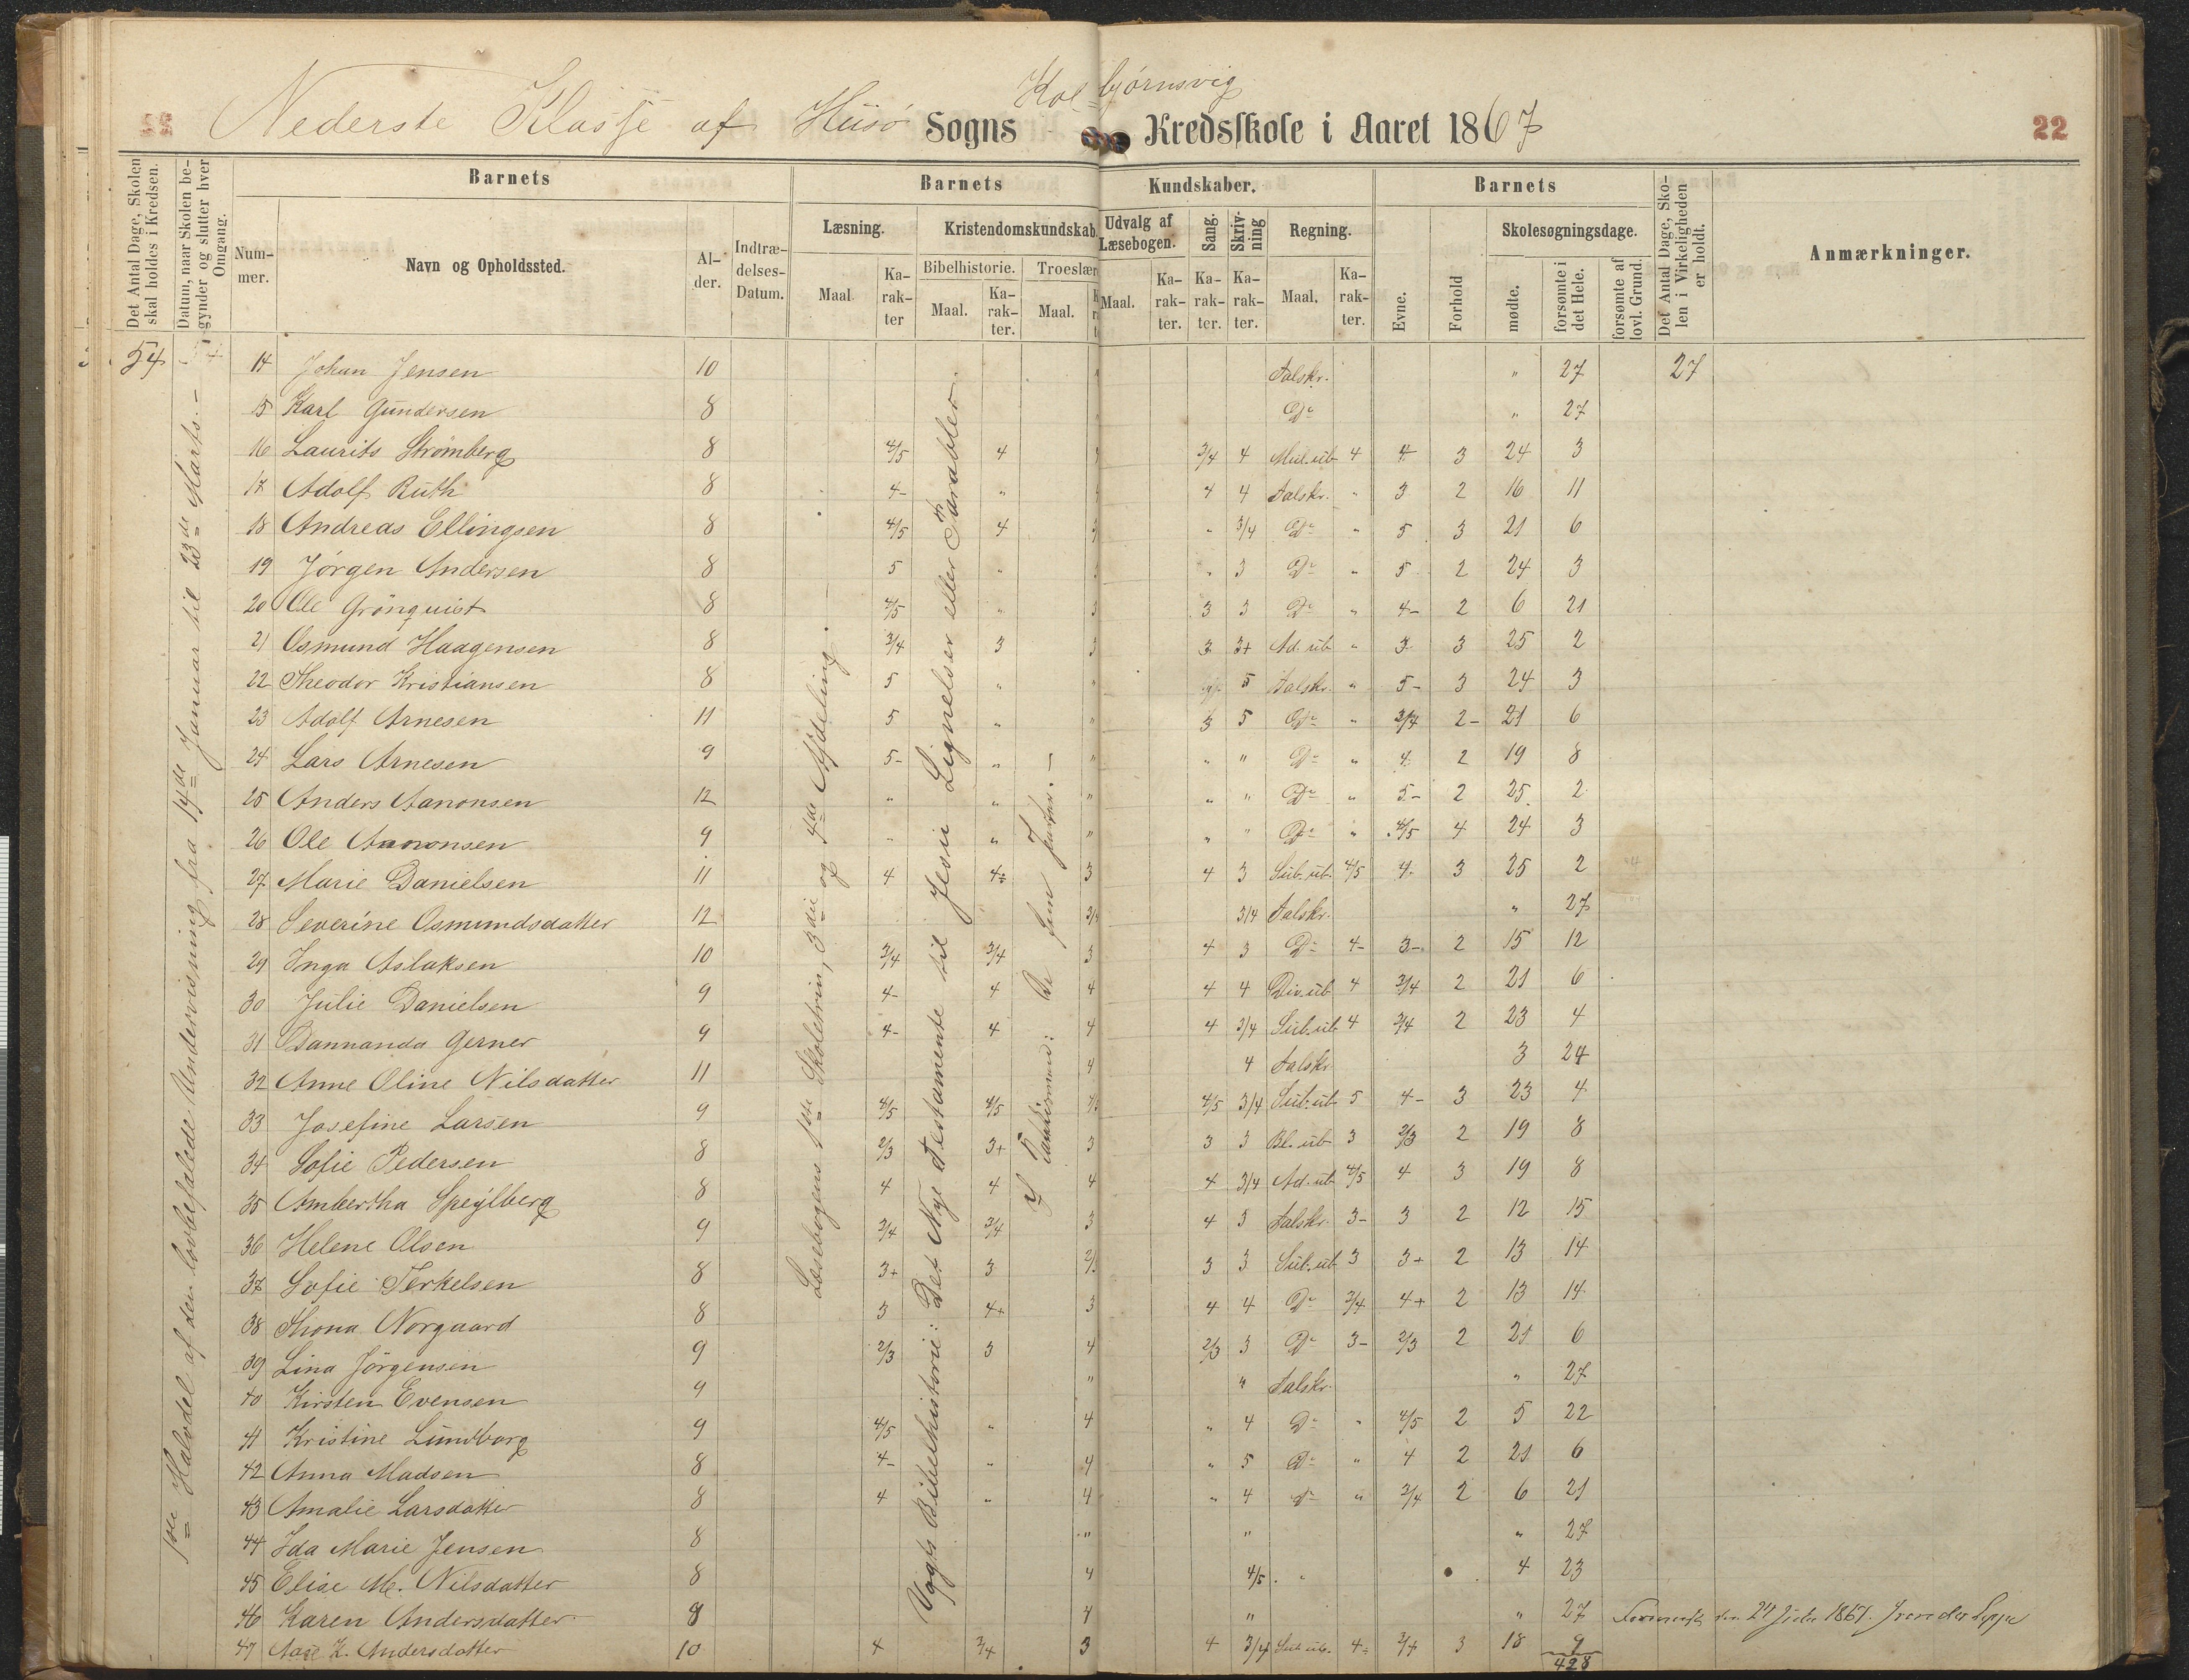 Nederste Klasse af Husø Sogns Kolbjørnsvig Kredsskole i Aaret 1867
22
Det Antal Dage, Skolen skal holdes i Kredsen.
Datum, naar Skolen begynder og slutter hver Omgang.
Barnets
Nummer.
Navn og Opholdssted.
Alder.
Indtrædelses-Datum.
Barnets Kundskaber.
Læsning.
Maal
Karakter
Kristendomskundskab.
Bibelhistorie.
Maal.
Karakter.
Troeslær
Maal.
Udvalg af Læsebogen.
Maal.
Karakter.
Sang.
Karakter.
Skrivning
Karakter.
Regning.
Maal.
Karakter.
Barnets
Evne.
Forhold
Skolesøgningsdage.
mødte.
forsømte i det Hele.
forsømte af lovl. Grund.
Det Antal Dage, Skolen i Virkeligheden er holdt.
Anmærkninger.
54
1ste Halvdel af den lovbefalede Undervisning fra 14de Januar til 23de Marts.-
Læsebogens 1ste Skoletrin, 3die og 4de Afdeling.
Vogts Bibelhistorie: Det Nye Testamente til Jesu Lignelser eller Parabler.
14 Johan Jensen 10 Talskr. " 27 27
15 Karl Gundersen 8 Do " 27
16 Laurits Strømberg 8 4/5 4 3/4 4 Mul. ub 4 4 3 24 3
17 Adolf Ruth 8 4- " 4 4 Talskr. " 3 2 16 11
18 Andreas Ellingsen 8 4/5 4 " 3/4 Do " 5 3 21 6
19 Jørgen Andersen 8 5 " " 3 Do " 5 2 24 3
20 Ole Grønquist 8 4/5 " 3 3 3 Do " 4- 2 6 21
21 Osmund Haagensen 8 3/4 3 3 3 3+ Ad. ub " 3 3 25 2
22 Theodor Kristiansen 8 5 " " 5 Talskr. " 5- 3 24 3
23 Adolf Arnesen 11 5 " " 3 5 Do " 3/4 2- 21 6
24 Lars Arnesen 9 5- " " " " Do " 4 2 19 8
25 Anders Aanonsen 12 " " " " " Do " 5- 2 25 2
26 Ole Aanonsen 9 " " " " " Do " 4/5 4 24 3
27 Marie Danielsen 11 4 4- 3 4 3 Sub. ub. 4/5 4 3 25 2
28 Severine Osmundsdatter 12 3/4 3/4 Talskr. " 27
29 Inga Aslaksen 10 3/4 3/4 3 4 3 Do 4- 3- 2 15 12
30 Julie Danielsen 9 4- 4 4 4 4 Div. ub 4 3/4 2 21 6
31 Gerner 9 4- 4 4 4 3/4 Sub. ub 4 3/4 2 23 4
32 Anne Oline Nilsdatter 11 4 4 Talskr. 3 24
33 Josefine Larsen 9 4/5 4/5 4/5 3/4 Sub. ub 5 4- 3 23 4
34 Sofie Pedersen 8 2/3 3+ 3 3 3 Bl. ub 3 2/3 2 19 8
35 Ambertha Speylberg 8 4 4 4 4 3/4 Ad. ub 4/5 4 3 19 8
36 Helene Olsen 9 3/4 3/4 3 4 3 Talskr. 3- 3 2 12 15
37 Sofie Terkelsen 8 3+ 3 2/3 3 3 Sub. ub 3 3+ 2 13 14
38 Thona Norgaard 8 3 4+ 3 4 4 Do 3/4 4+ 2 13 14
39 Lina Jørgensen 9 2/3 3 4 2/3 3 Do 3- 2/3 2 21 6
40 Kirsten Evensen 9 " " Talskr. " 27
41 Kristine Lundborg 9 4/5 " 4 " 4 Do " 4/5 2 5 22
42 Anna Madsen 8 4- " 4 " 5 Do " 4 2 21 6
43 Amalie Larsdatter 8 4 " 4 " 4 Do " 3/4 2 6 21
44 Ida Marie Jensen 8 " " " 27
45 Elise M. Nilsdatter 8 4 4/5 " 4 23
46 Karen Andersdatter 8 4 " " 27
47 Aase K. Andersdatter 10 4 3/4 3 4 3/4 Sub. ub. 4- 3/4 3 18 9
428